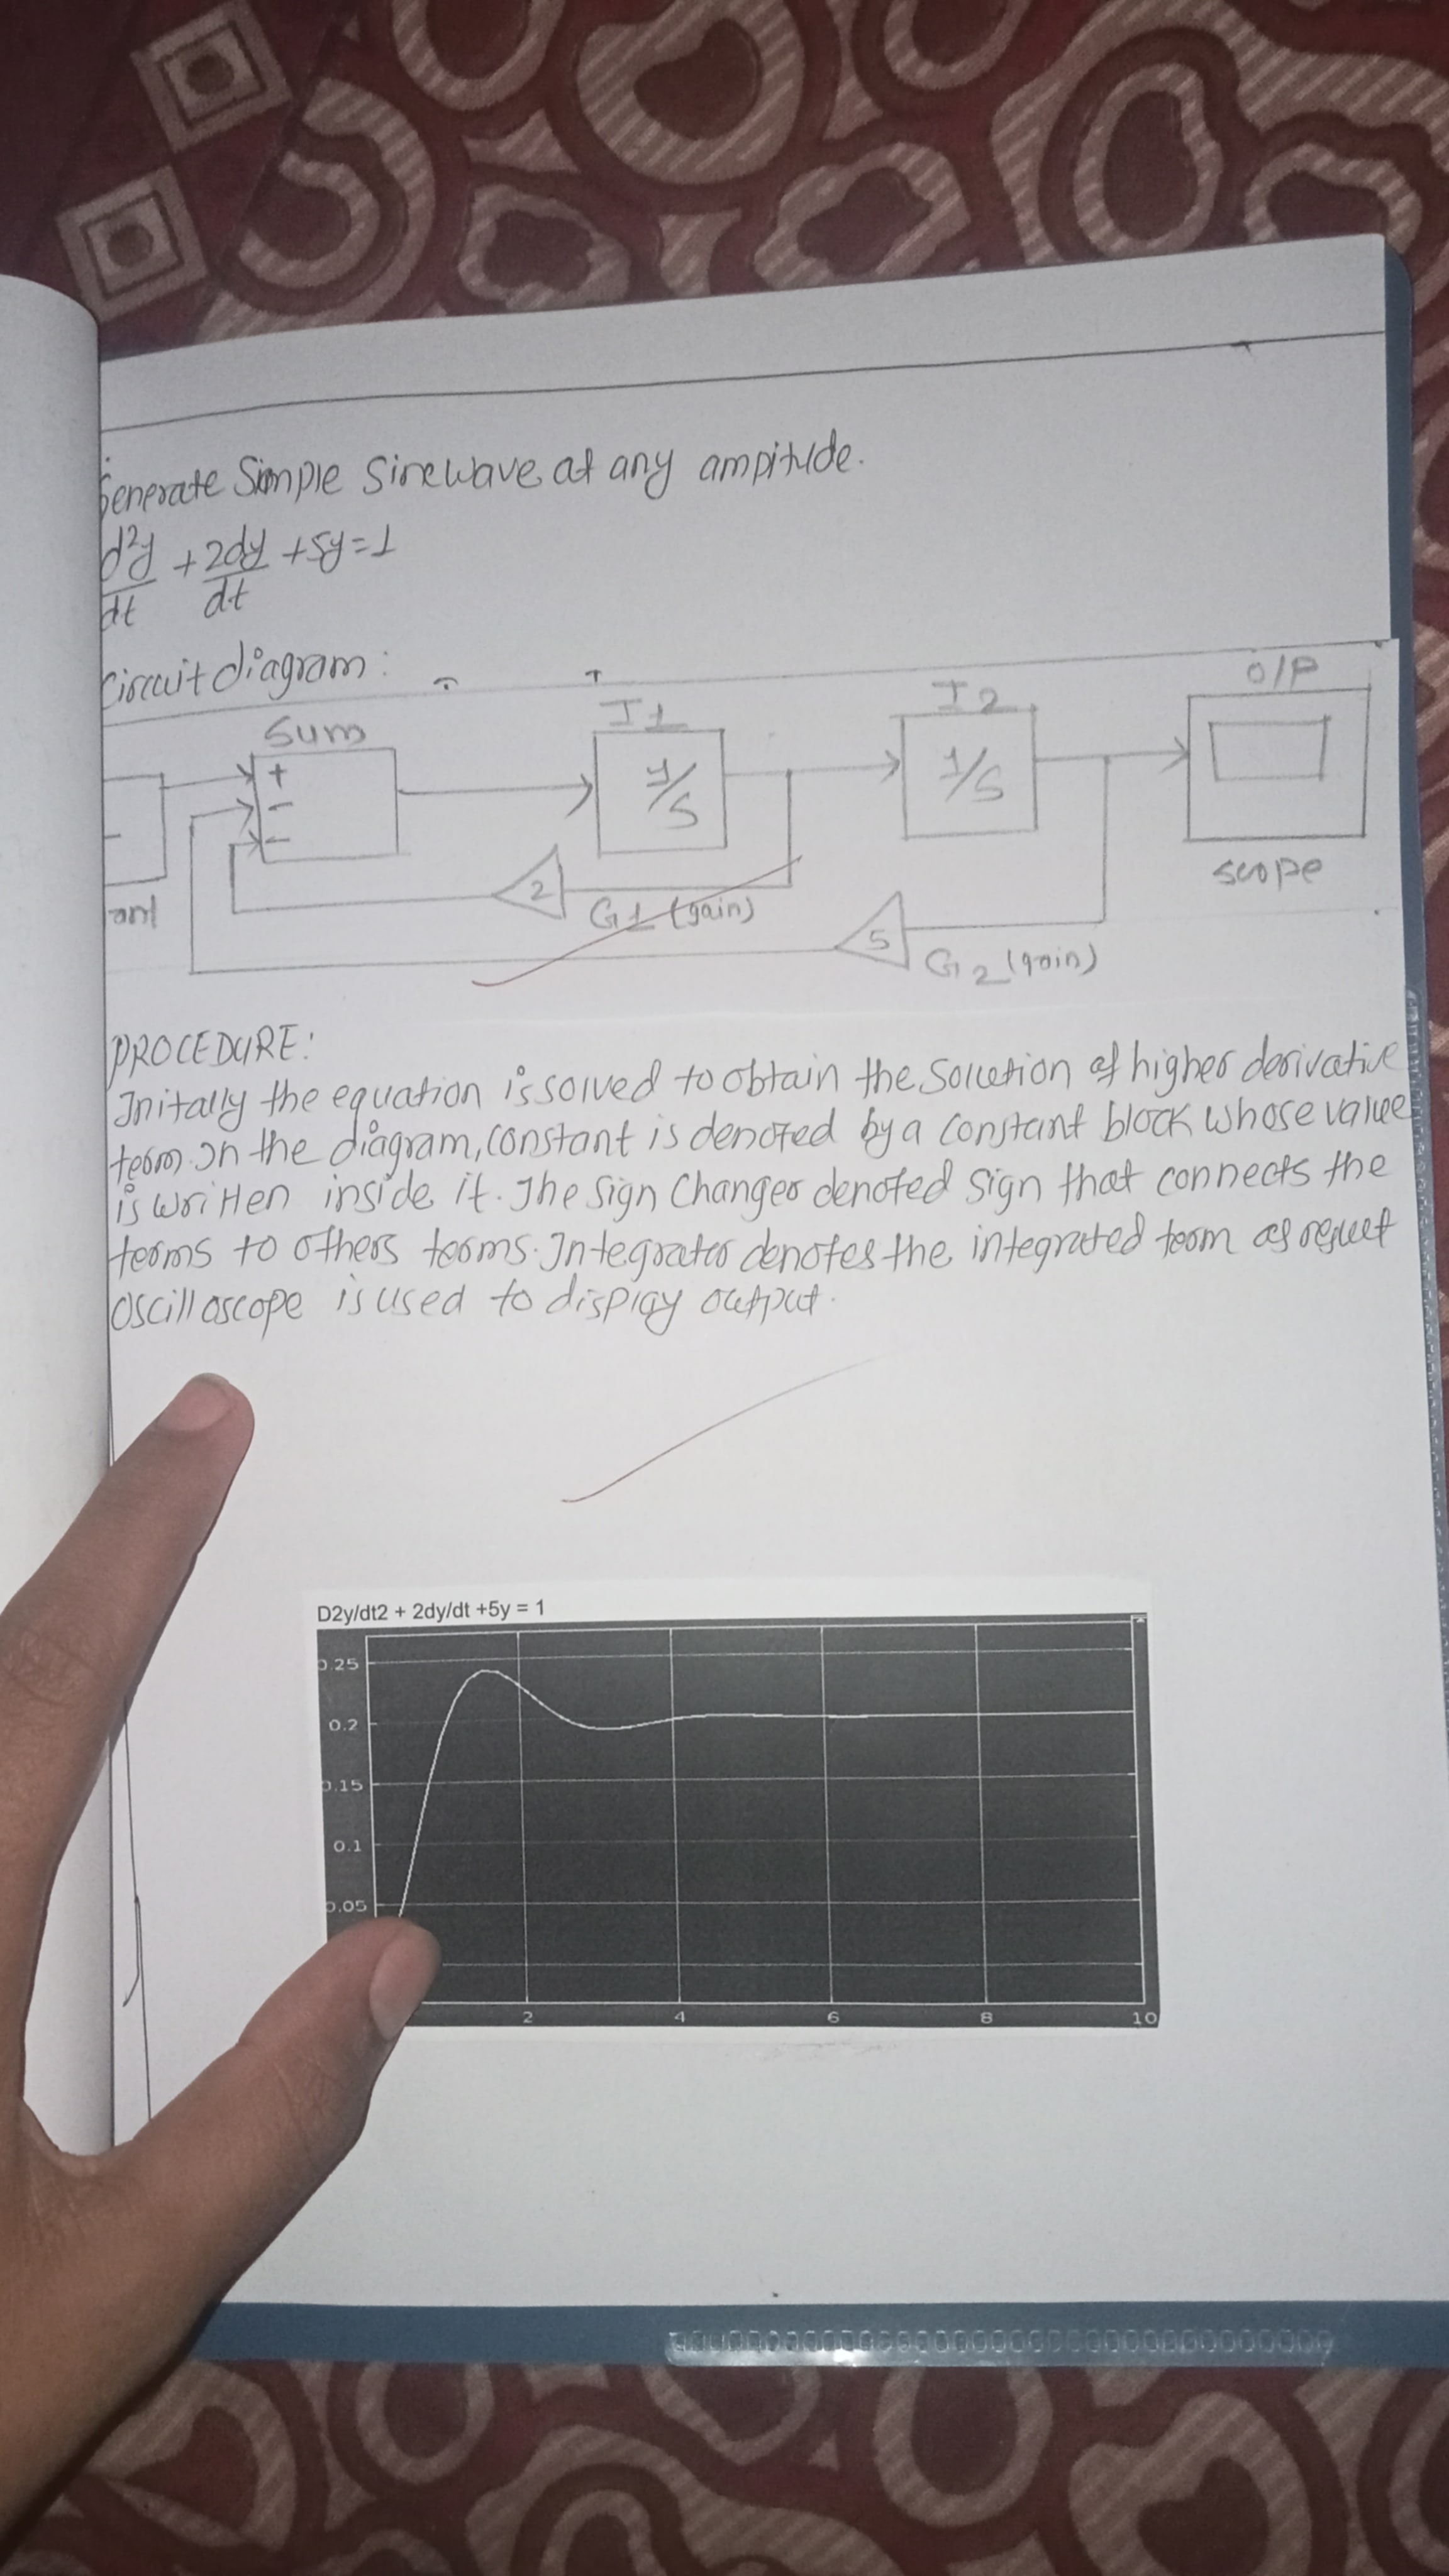 Generate Simple Sinewave at any ampitude.
d²y/dt + 2dy/dt + 5y = 1
Circuit diagram:
Sum I1 I2 O/P
+
-
-
1/s 1/s
2 G1 (gain)
scope
5 G2 (gain)
PROCEDURE:
Initally the equation is solved to obtain the Solution of higher derivative
term. In the diagram, constant is denoted by a constant block whose value
is written inside it. The Sign Changer denoted Sign that connects the
terms to others terms. Integrator denotes the integrated term as
Oscilloscope is used to display output.
D2y/dt2 + 2dy/dt +5y = 1
0.25
0.2
0.15
0.1
0.05
2 4 6 8 10